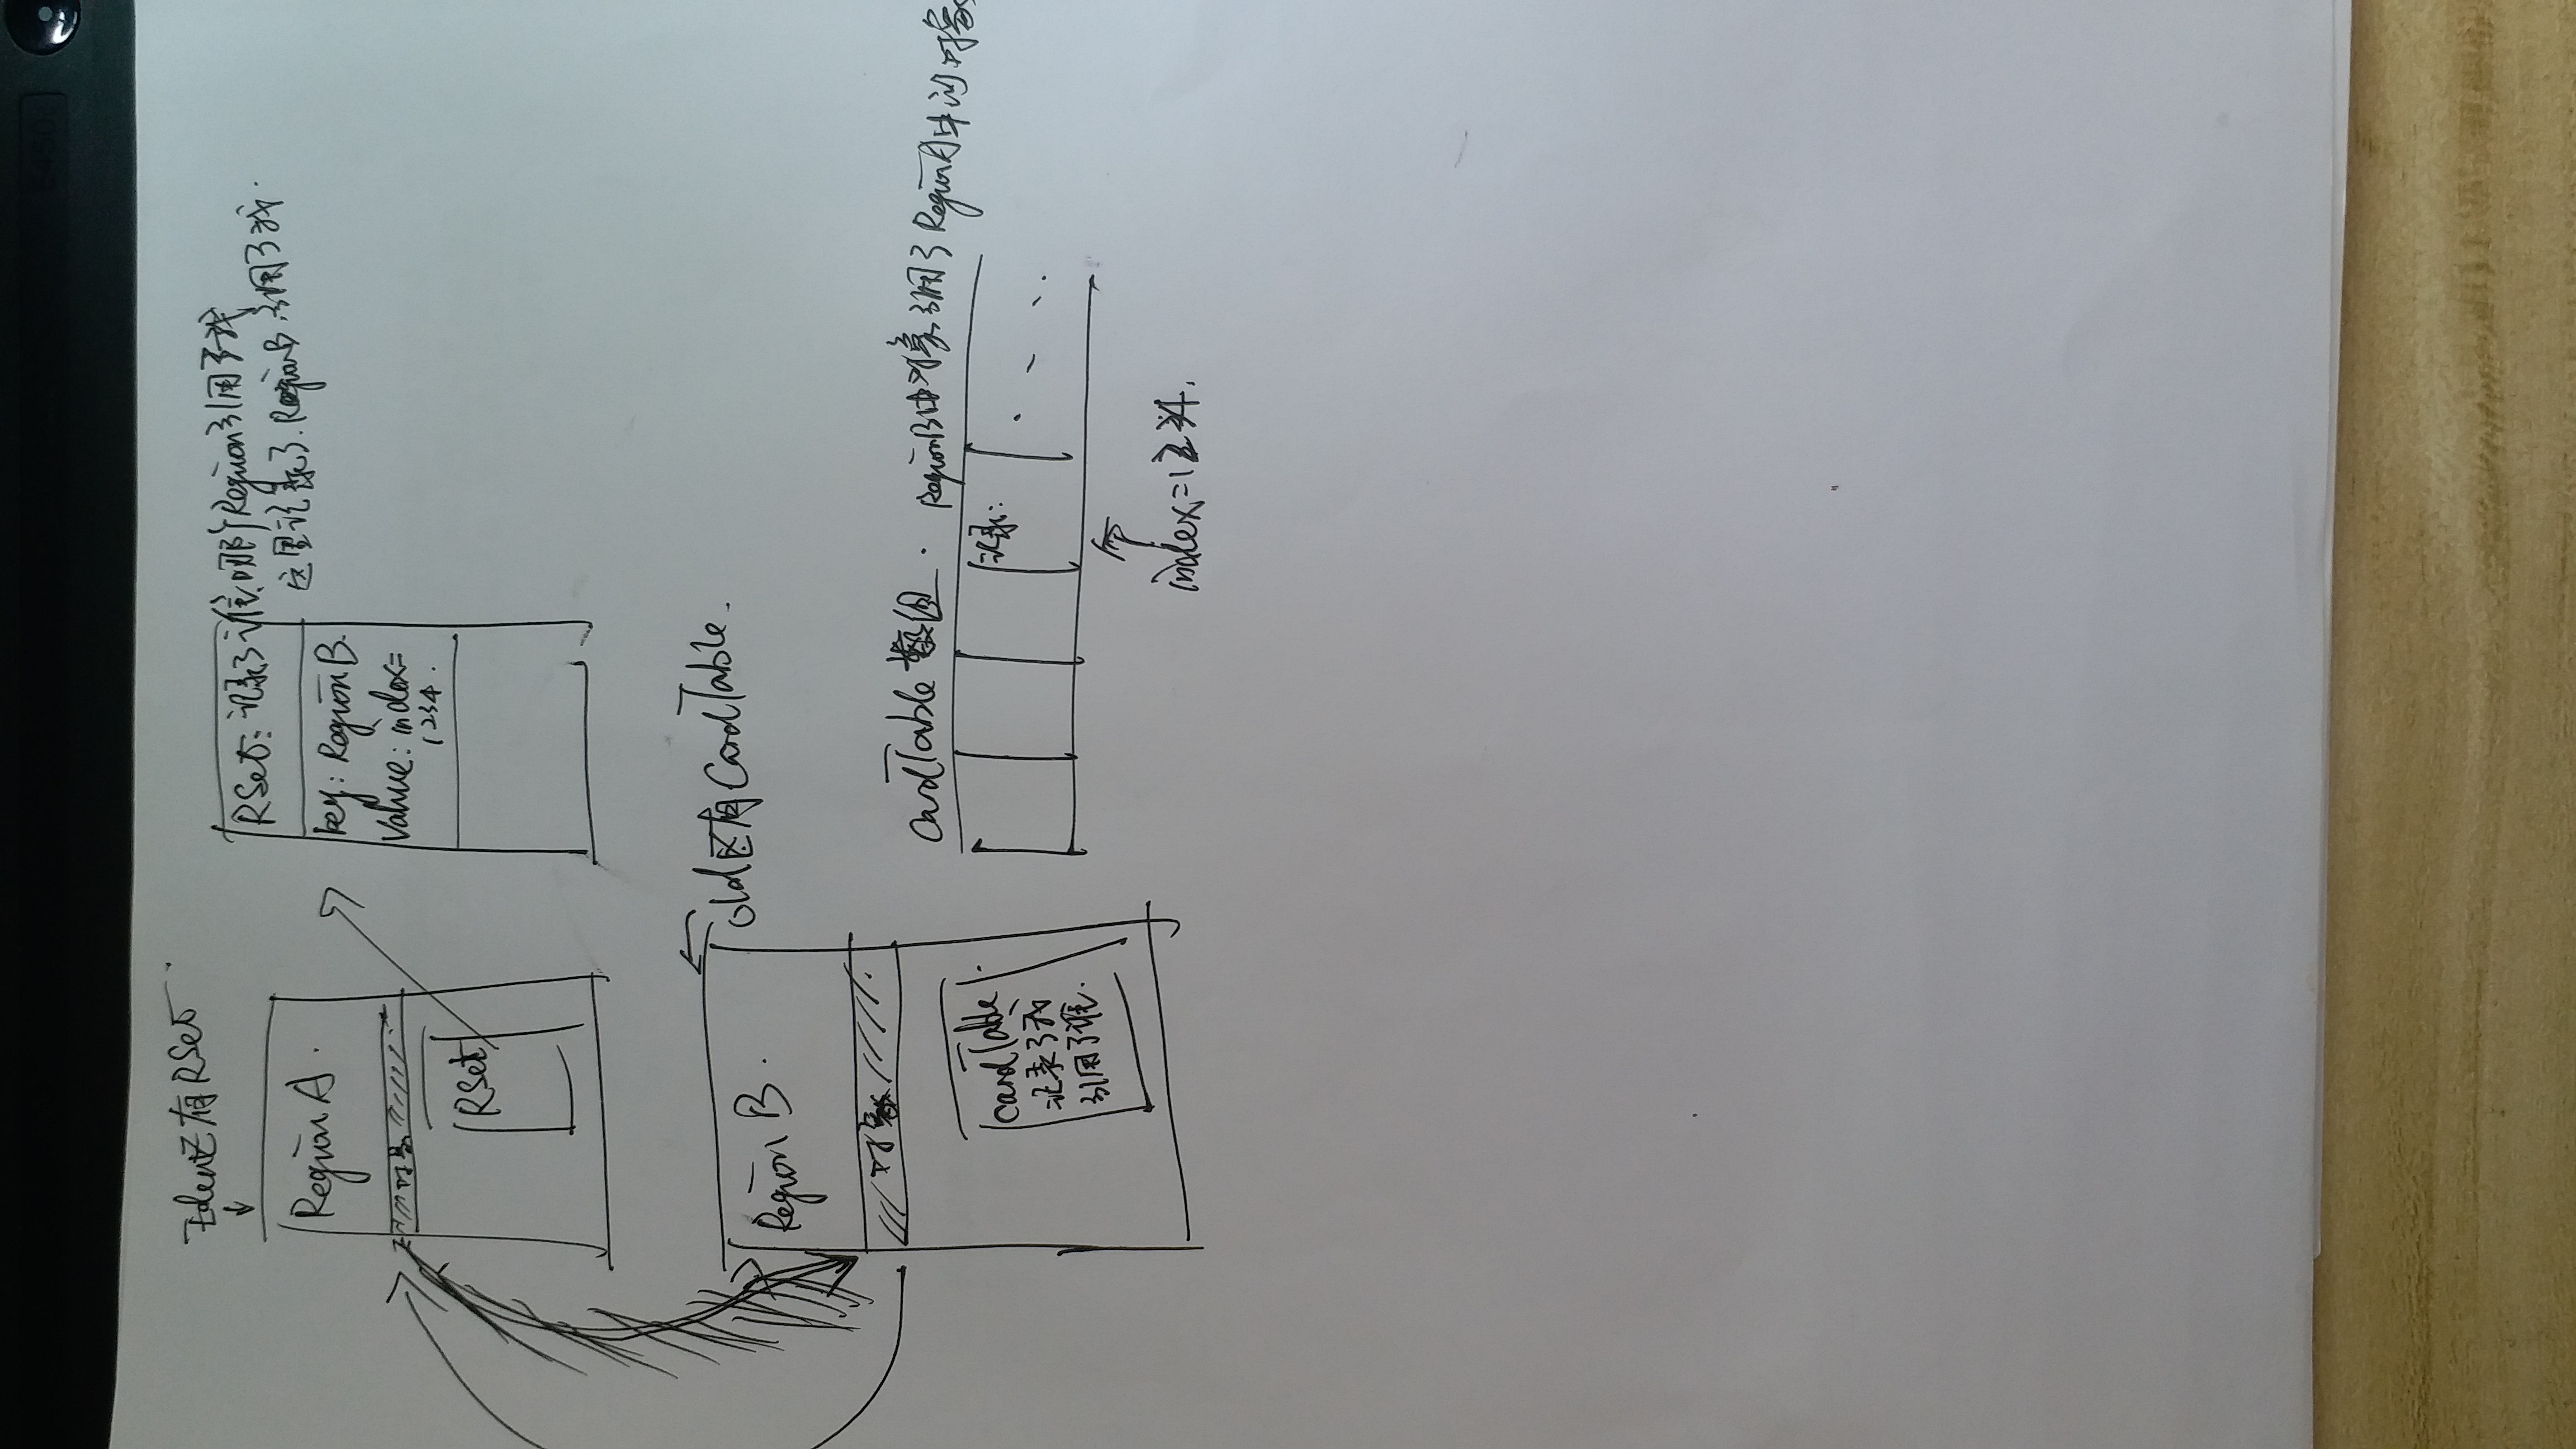 Eden区有RSet
Region A.
对象
RSet
RSet: 记录了谁、哪个Region引用了我
这里记录了.RegionB.引用了我.
key: Region B.
Value: index=
1234.
old区有CardTable.
Region B.
对象
CardTable
记录了我
引用了谁.
CardTable 数组. RegionB中对象引用了RegionA中的对象
记录:
index=1234.